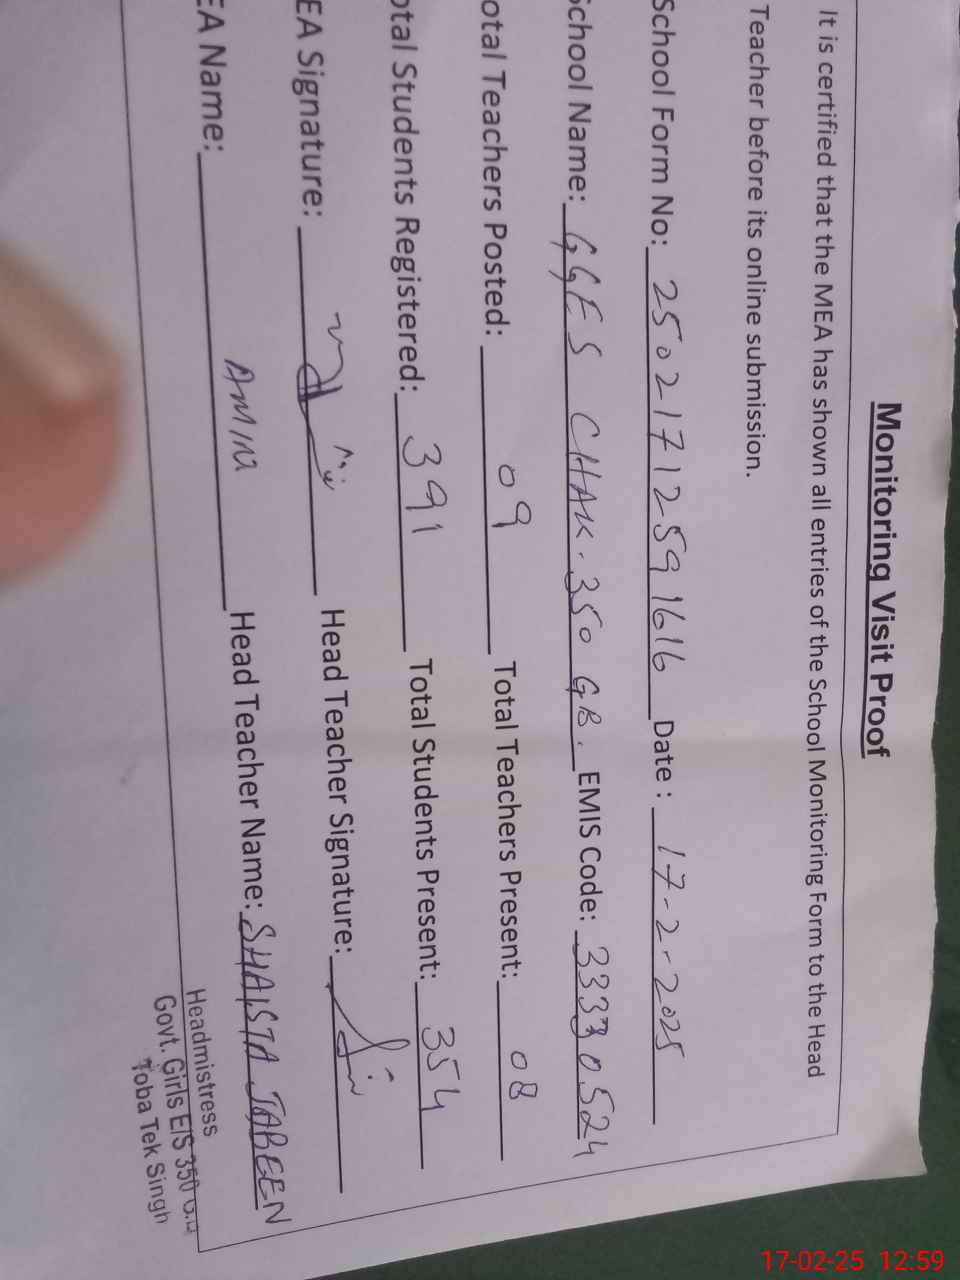 Monitoring Visit Proof
It is certified that the MEA has shown all entries of the School Monitoring Form to the Head
Teacher before its online submission.
School Form No: 25021712591616 Date : 17-2-2025
School Name: GGES CHAK. 350 GB. EMIS Code: 33330524
otal Teachers Posted: 09 Total Teachers Present: 08
otal Students Registered: 391 Total Students Present: 354
EA Signature: Head Teacher Signature:
EA Name: AMIN Head Teacher Name: SHAISTA JABEEN
Headmistress
Govt. Girls E/S 350 G.B
Toba Tek Singh
17-02-25 12:59